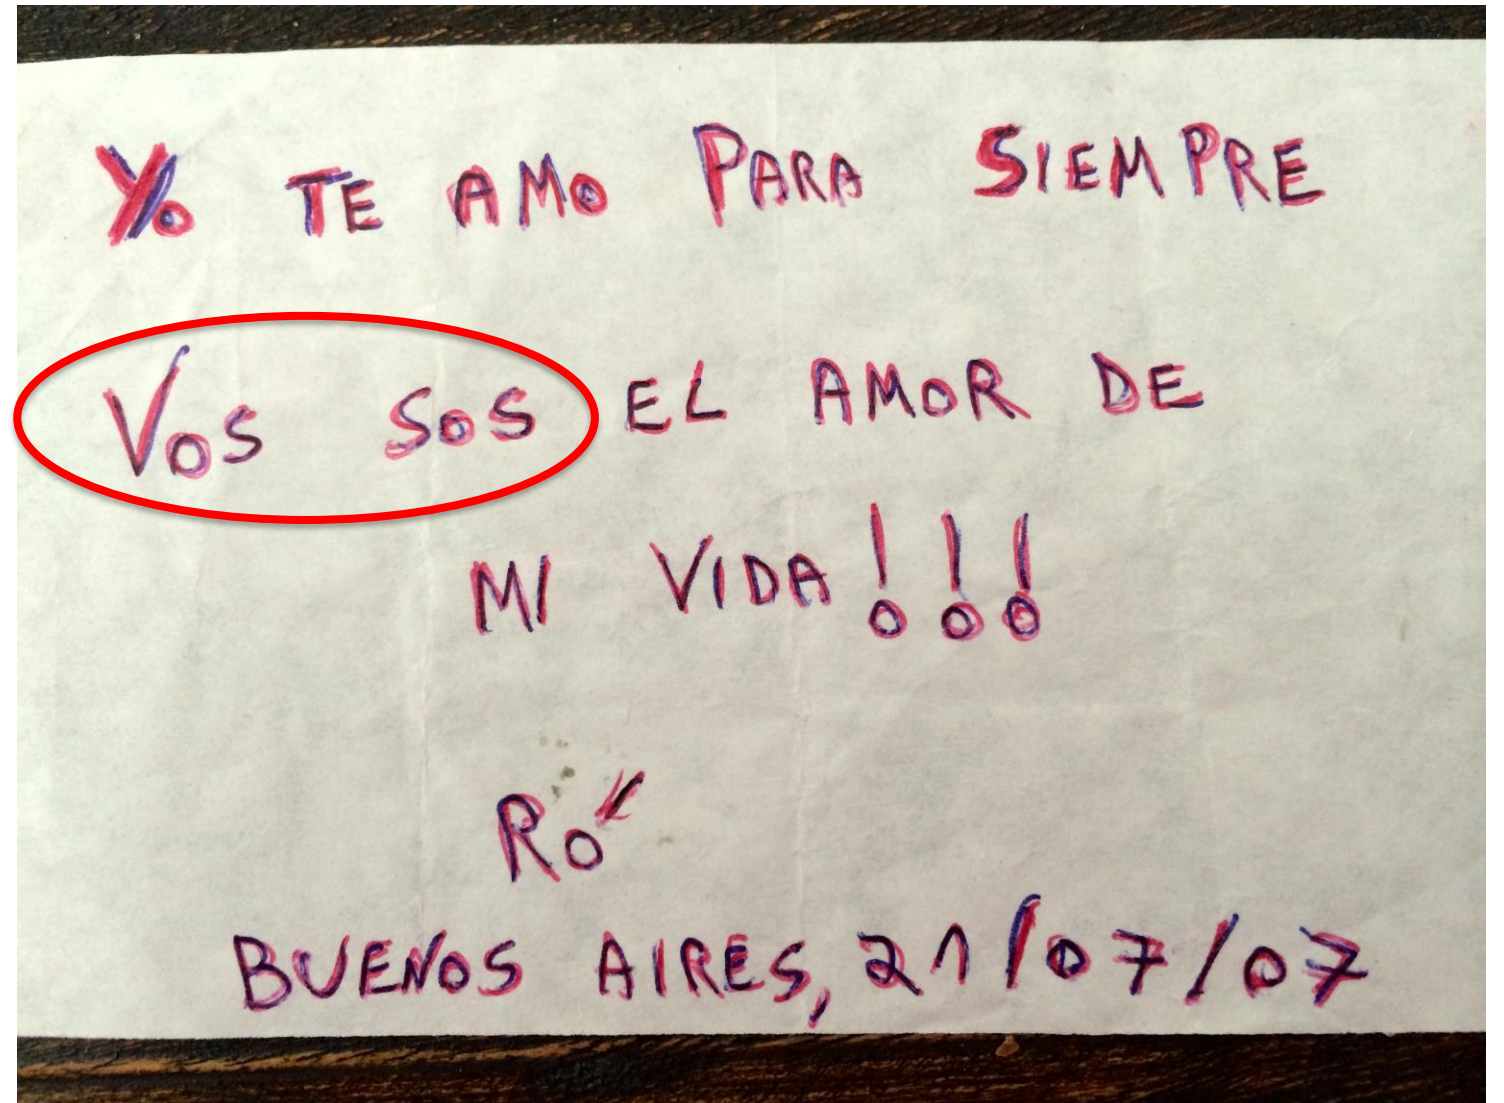 Yo TE AMO PARA SIEMPRE
VOS SOS EL AMOR DE
MI VIDA!!!
RO´
BUENOS AIRES, 21/07/07